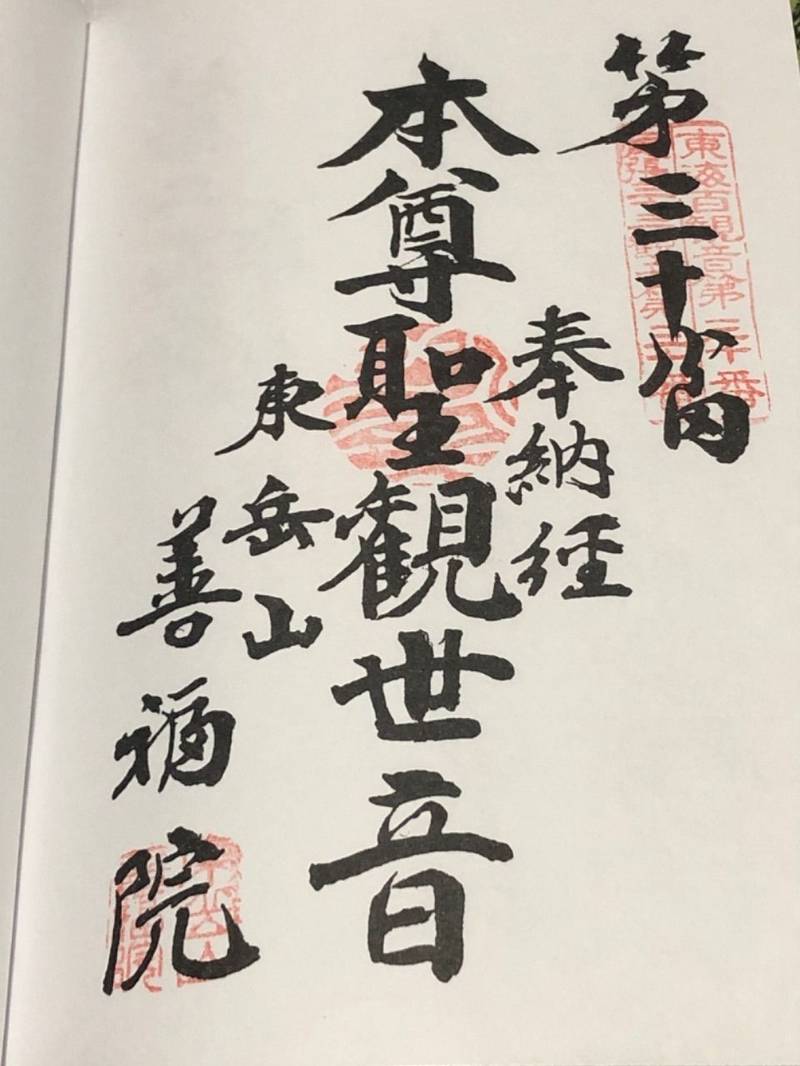 東海百観音第三十番
第三十番
奉納経
本尊聖観世音
東岳山
善福院